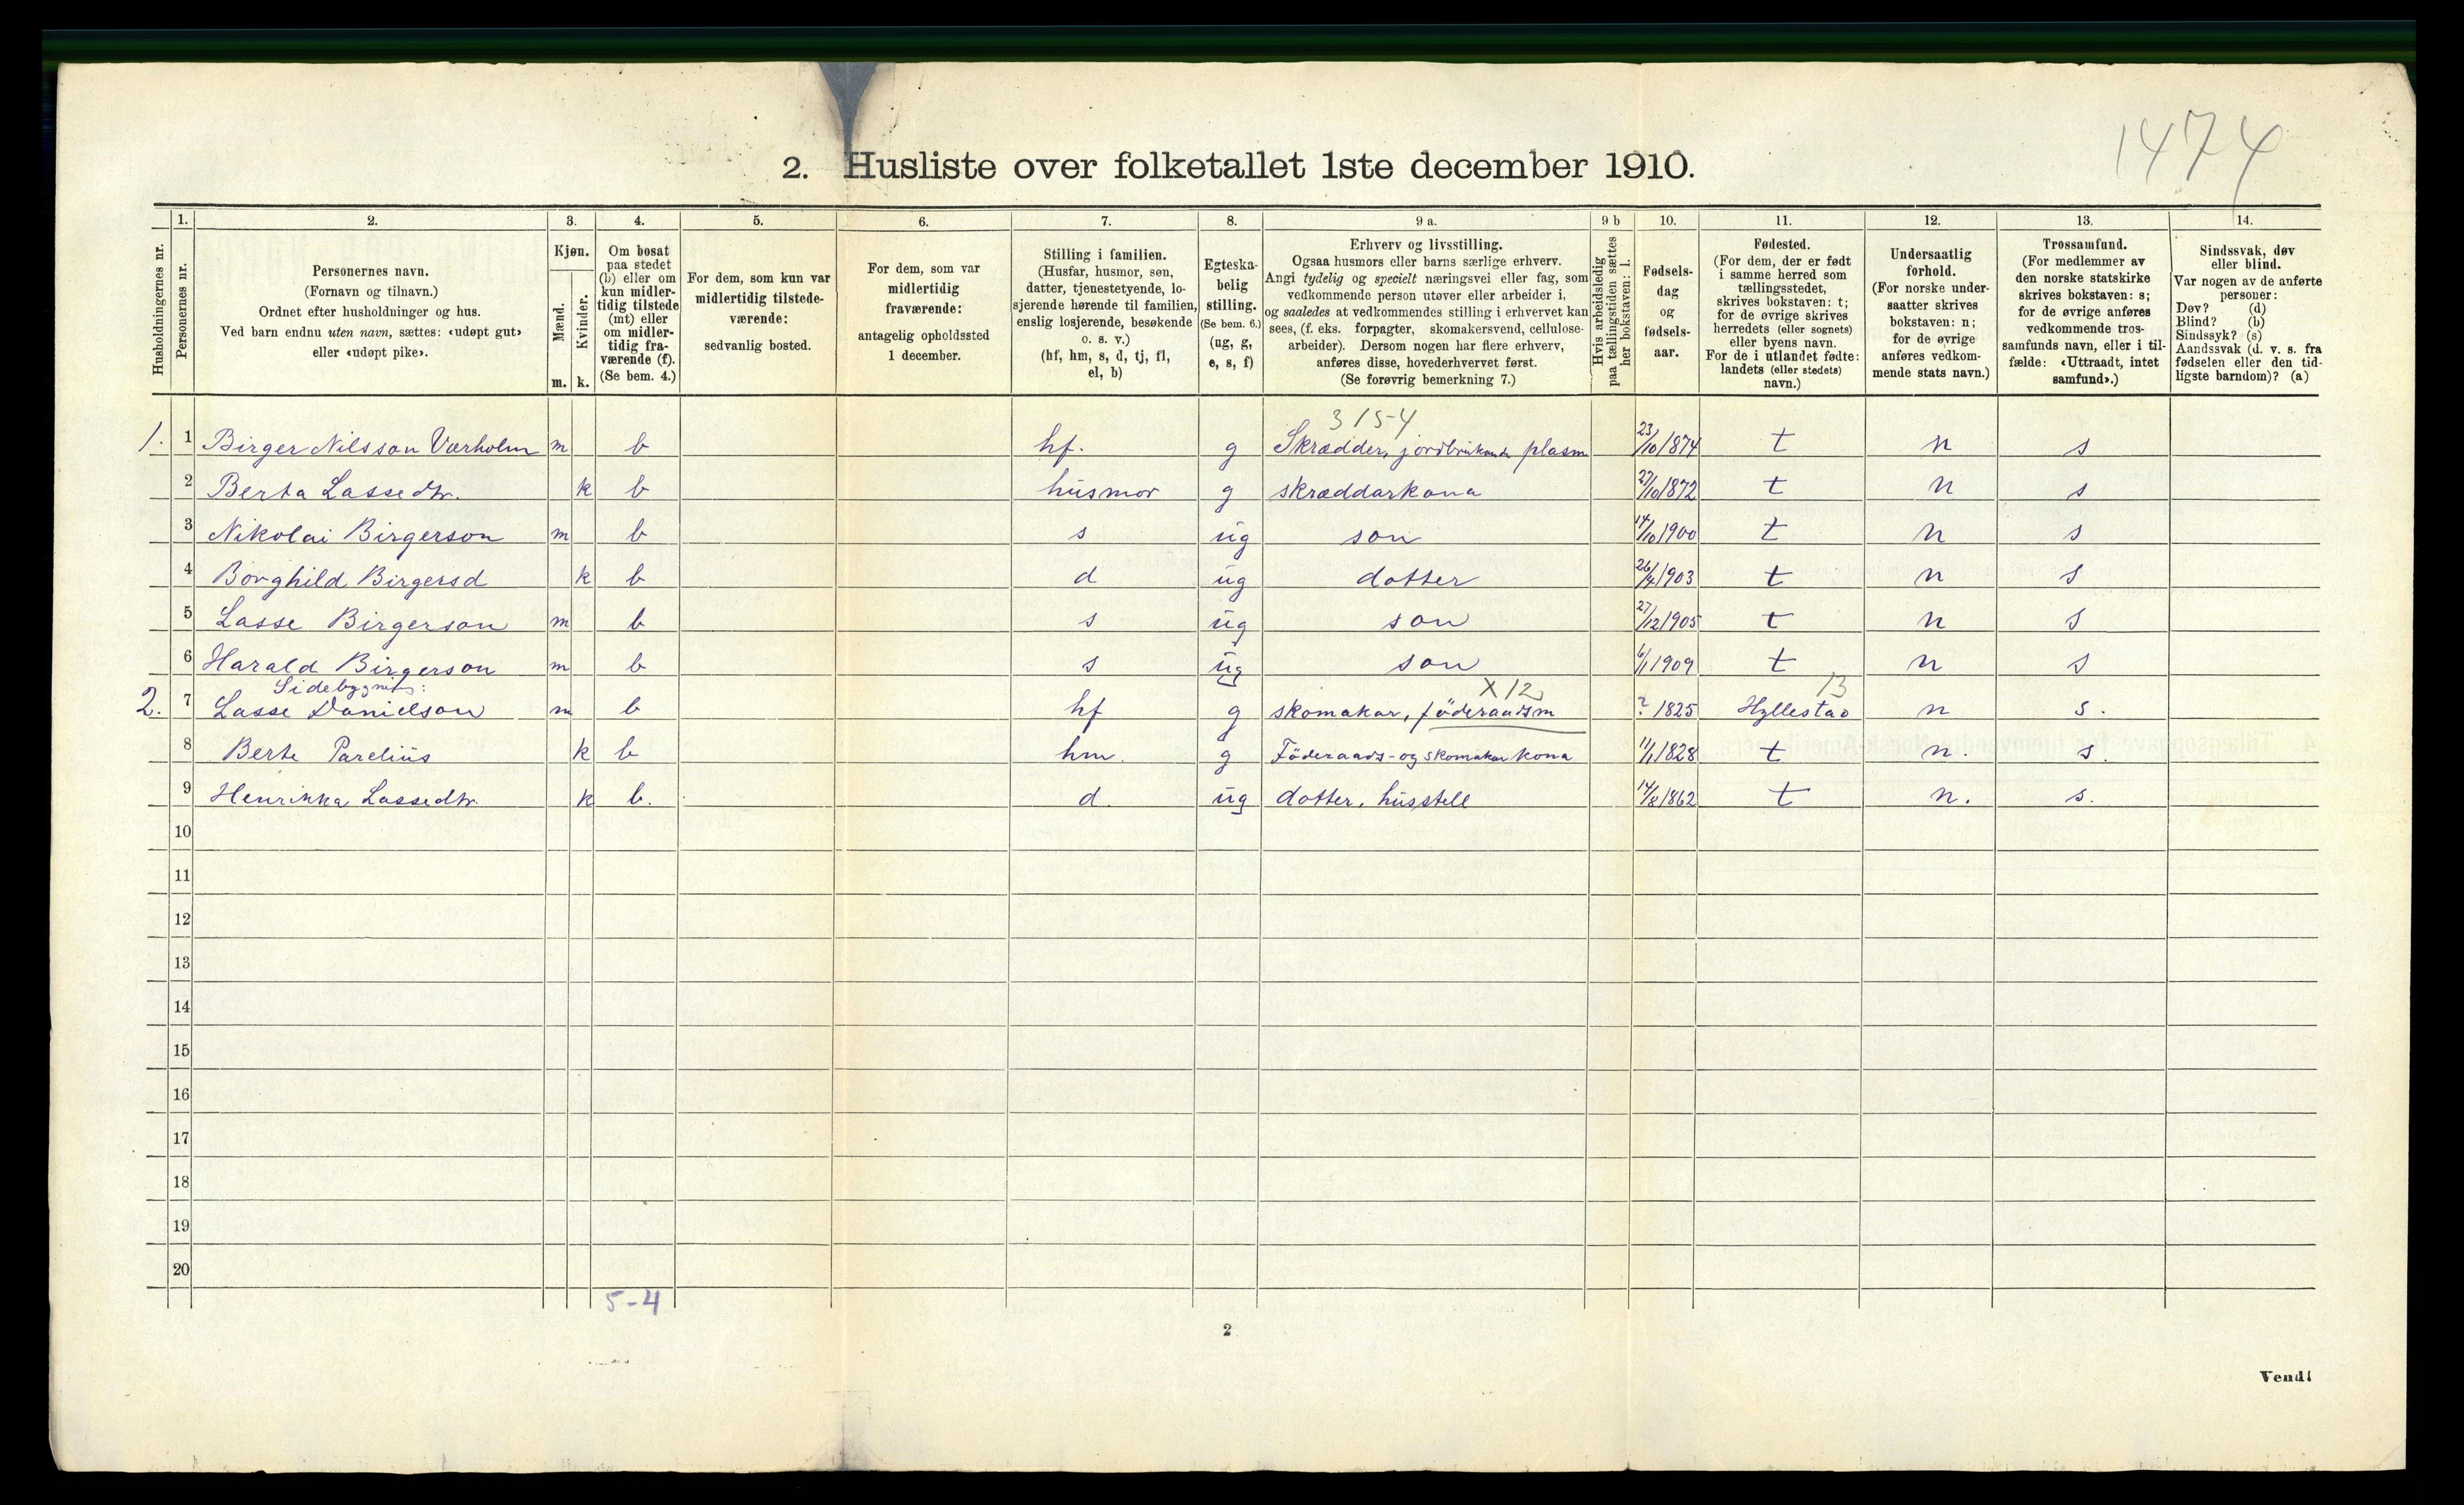 1474
2. Husliste over folketallet 1ste december 1910.
Husholdningernes nr.
1. Personernes nr.
2. Personernes navn. (Fornavn og tilnavn.) Ordnet efter husholdninger og hus. Ved barn endnu uten navn, sættes: «udøpt gut» eller «udøpt pike».
3. Kjøn. Mænd. m. Kvinder. k.
4. Om bosat paa stedet (b) eller om kun midlertidig tilstede (mt) eller om midlertidig fraværende (f). (Se bem. 4.)
5. For dem, som kun var midlertidig tilstedeværende: sedvanlig bosted.
6. For dem, som var midlertidig fraværende: antagelig opholdssted 1 december.
7. Stilling i familien. (Husfar, husmor, søn, datter, tjenestetyende, losjerende hørende til familien, enslig losjerende, besøkende o. s. v.) (hf, hm, s, d, tj, fl, el, b)
8. Egteskabelig stilling. (Se bem. 6.) (ug, g, e, s, f)
9 a. Erhverv og livsstilling. Ogsaa husmors eller barns særlige erhverv. Angi tydelig og specielt næringsvei eller fag, som vedkommende person utøver eller arbeider i, og saaledes at vedkommendes stilling i erhvervet kan sees, (f. eks. forpagter, skomakersvend, cellulosearbeider). Dersom nogen har flere erhverv, anføres disse, hovederhvervet først. (Se forøvrig bemerkning 7.)
9 b Hvis arbeidsledig paa tællingstiden sættes her bokstaven: l.
10. Fødselsdag og fødselsaar.
11. Fødested. (For dem, der er født i samme herred som tællingsstedet, skrives bokstaven: t; for de øvrige skrives herredets (eller sognets) eller byens navn. For de i utlandet fødte: landets (eller stedets) navn.)
12. Undersaatlig forhold. (For norske undersaatter skrives bokstaven: n; for de øvrige anføres vedkommende stats navn.)
13. Trossamfund. (For medlemmer av den norske statskirke skrives bokstaven: s; for de øvrige anføres vedkommende trossamfunds navn, eller i tilfælde: «Uttraadt, intet samfund».)
14. Sindssvak, døv eller blind. Var nogen av de anførte personer: Døv? (d) Blind? (b) Sindssyk? (s) Aandssvak (d. v. s. fra fødselen eller den tidligste barndom)? (a)
3154
1. 1 Birger Nilsson Værholm m b hf. g Skrædder, jordbrukande plasm 23/10 1874 t n s
2 Berta Lassedtr. k b husmor g skræddarkona 27/10 1872 t n s
3 Nikolai Birgerson m b s ug son 14/10 1900 t n s
4 Borghild Birgersd k b d ug dotter 26/4 1903 t n s
5 Lasse Birgerson m b s ug son 27/12 1905 t n s
6 Harald Birgerson m b s ug son 6/1 1909 t n s
Sidebygnig: X12 13
2. 7 Lasse Danielson m b hf g skomakar, föderaadsm ? 1825 Hyllestad n s.
8 Berte Parelius k b hm. g Föderaads- og skomakar kona 11/1 1828 t n. s.
9 Henrikka Lassedtr. k b. d. ug dotter, husstell 14/8 1862 t n. s.
10
11
12
13
14
15
16
17
18
19
20
5-4
2
Vend!